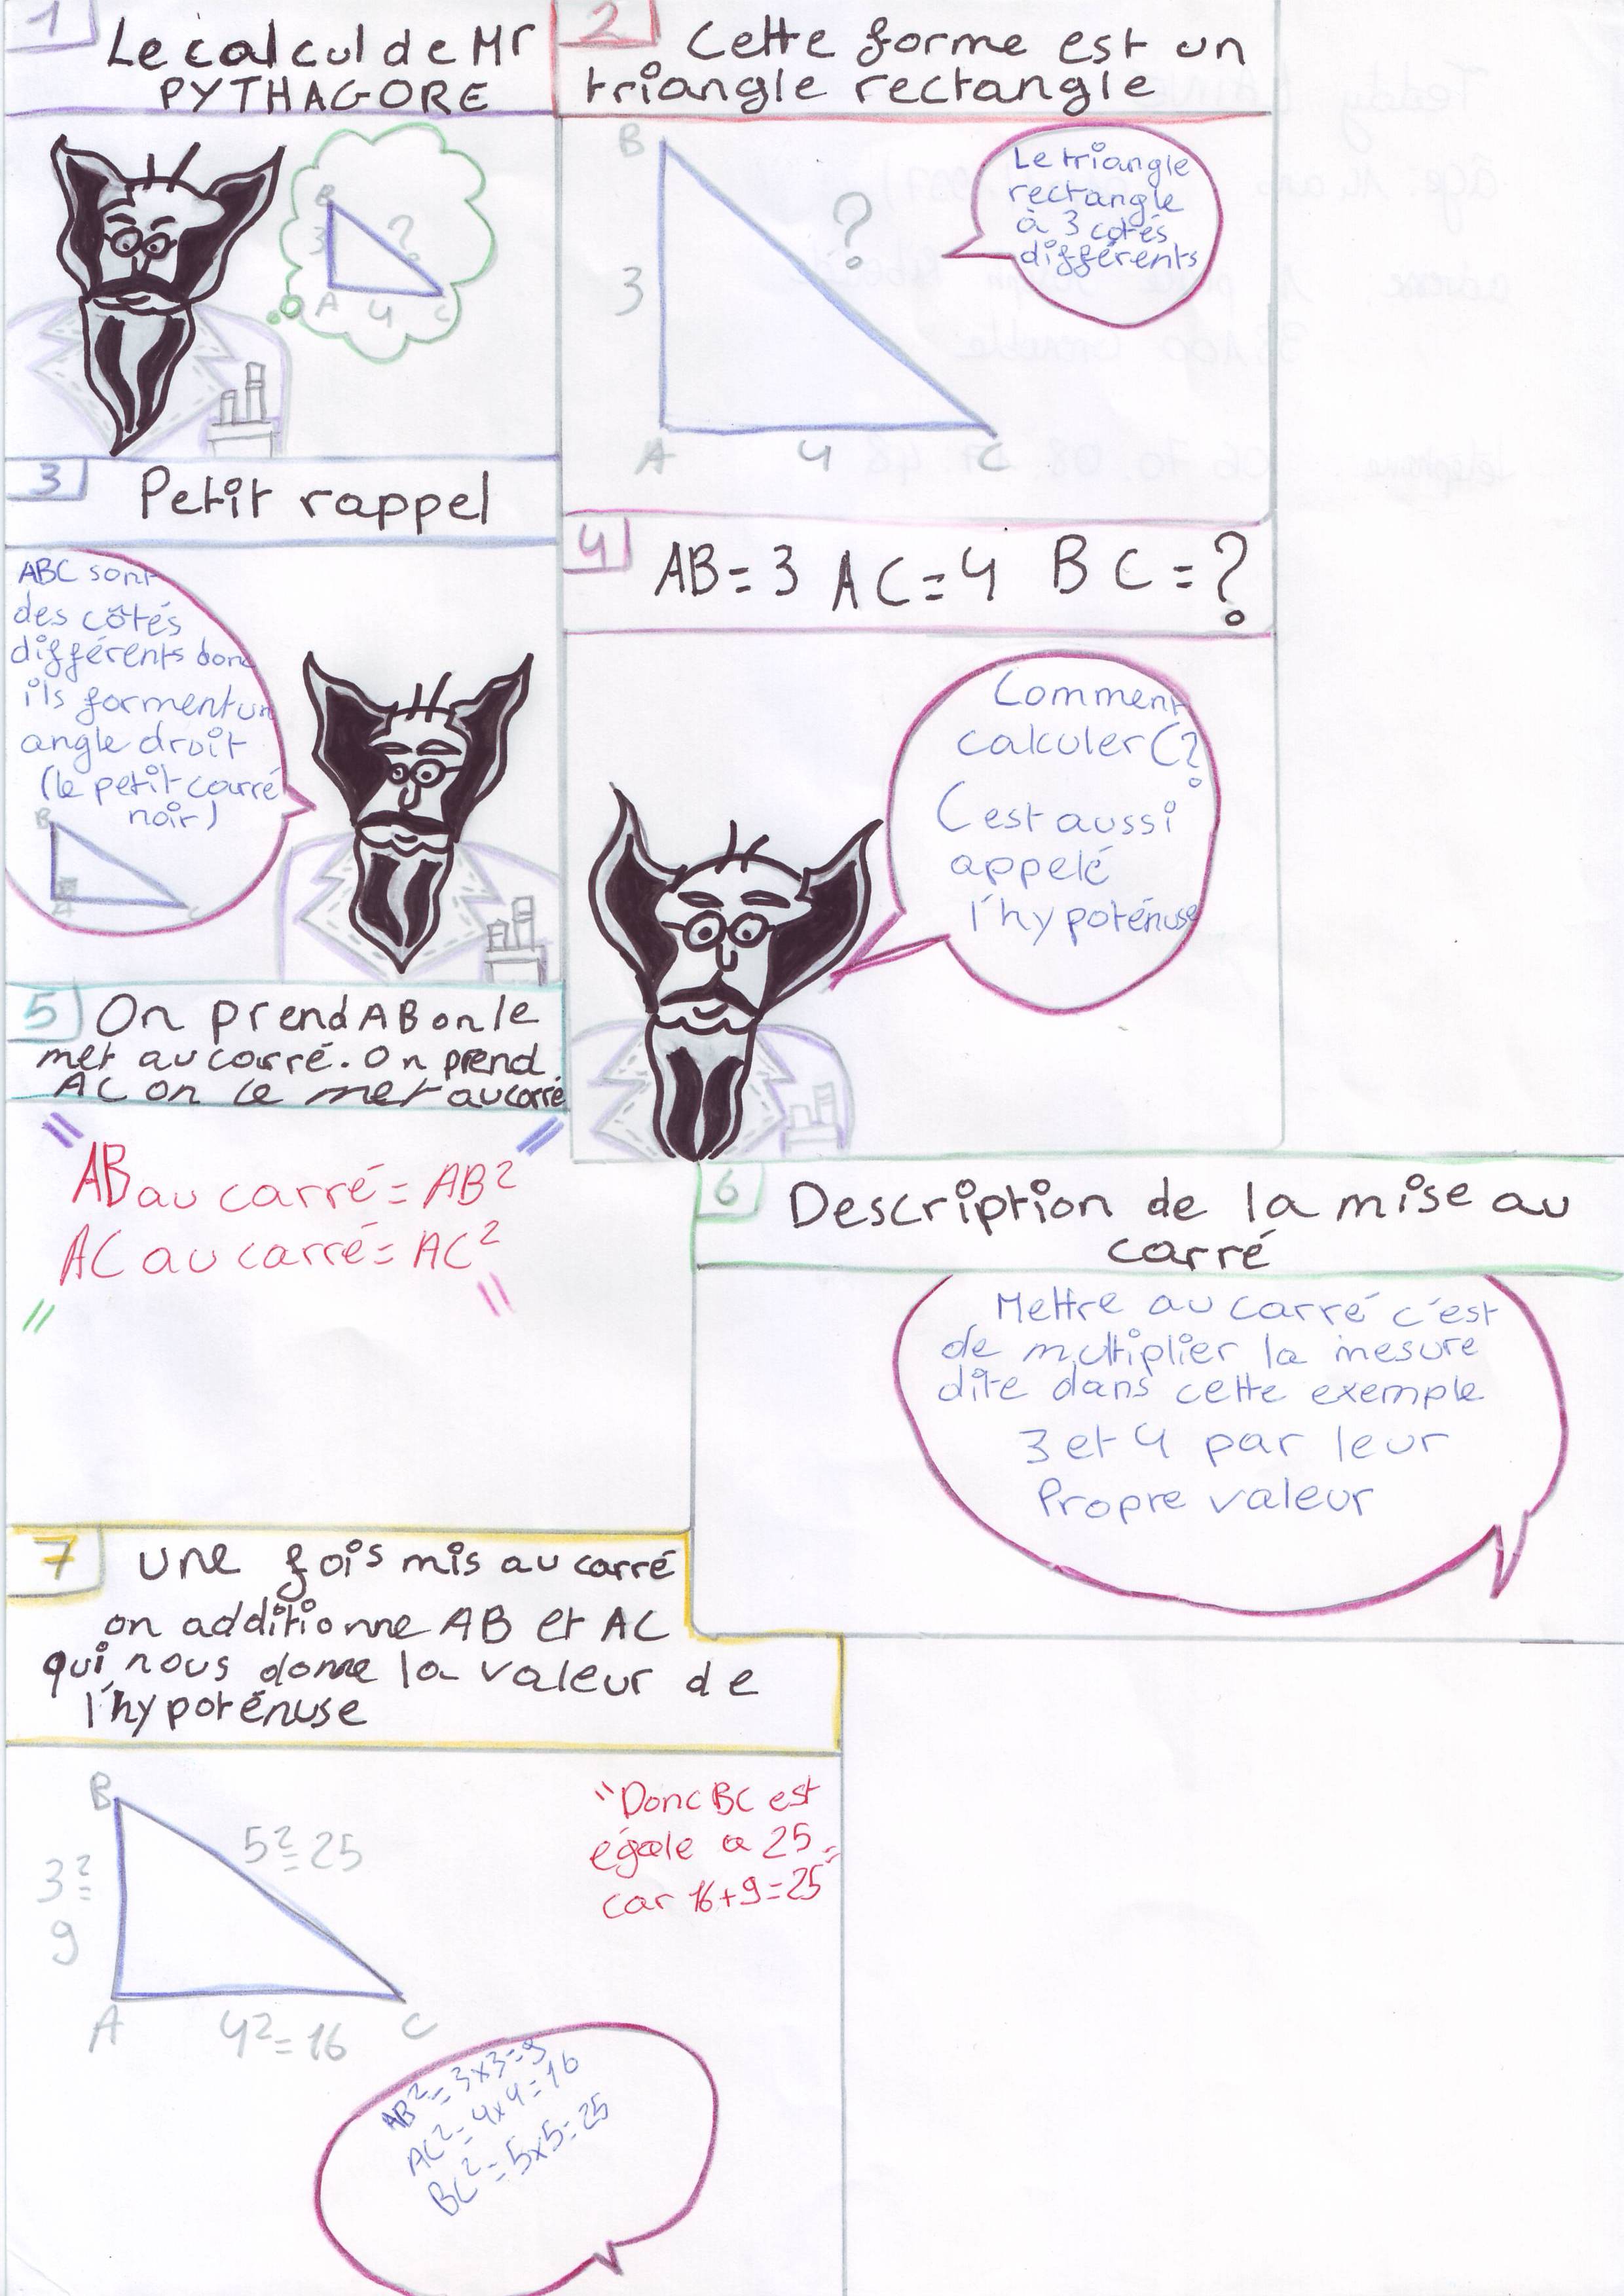 1
Le calcul de Mr
PYTHAGORE
B
3
?
A
4
C
2
Cette forme est un
triangle rectangle
B
3
?
A
4
C
Le triangle
rectangle
à 3 cotés
différents
3
Petit rappel
ABC sont
des côtés
différents donc
ils forment un
angle droit
(le petit carré
noir)
B
A
C
4
AB=3 AC=4 BC=?
Comment
calculer C?
C est aussi
appelé
l'hypoténuse
5
On prend AB on le
met au carré. On prend
AC on le met au carré
AB au carré = AB²
AC au carré = AC²
6
Description de la mise au
carré
Mettre au carré c'est
de multiplier la mesure
dite dans cette exemple
3 et 4 par leur
Propre valeur
7
Une fois mis au carré
on additionne AB et AC
qui nous donne la valeur de
l'hypoténuse
B
3²=
9
5²=25
A
4²=16
C
"Donc BC est
égale a 25
car 16+9=25"
AB²=3x3=9
AC²=4x4=16
BC²=5x5=25